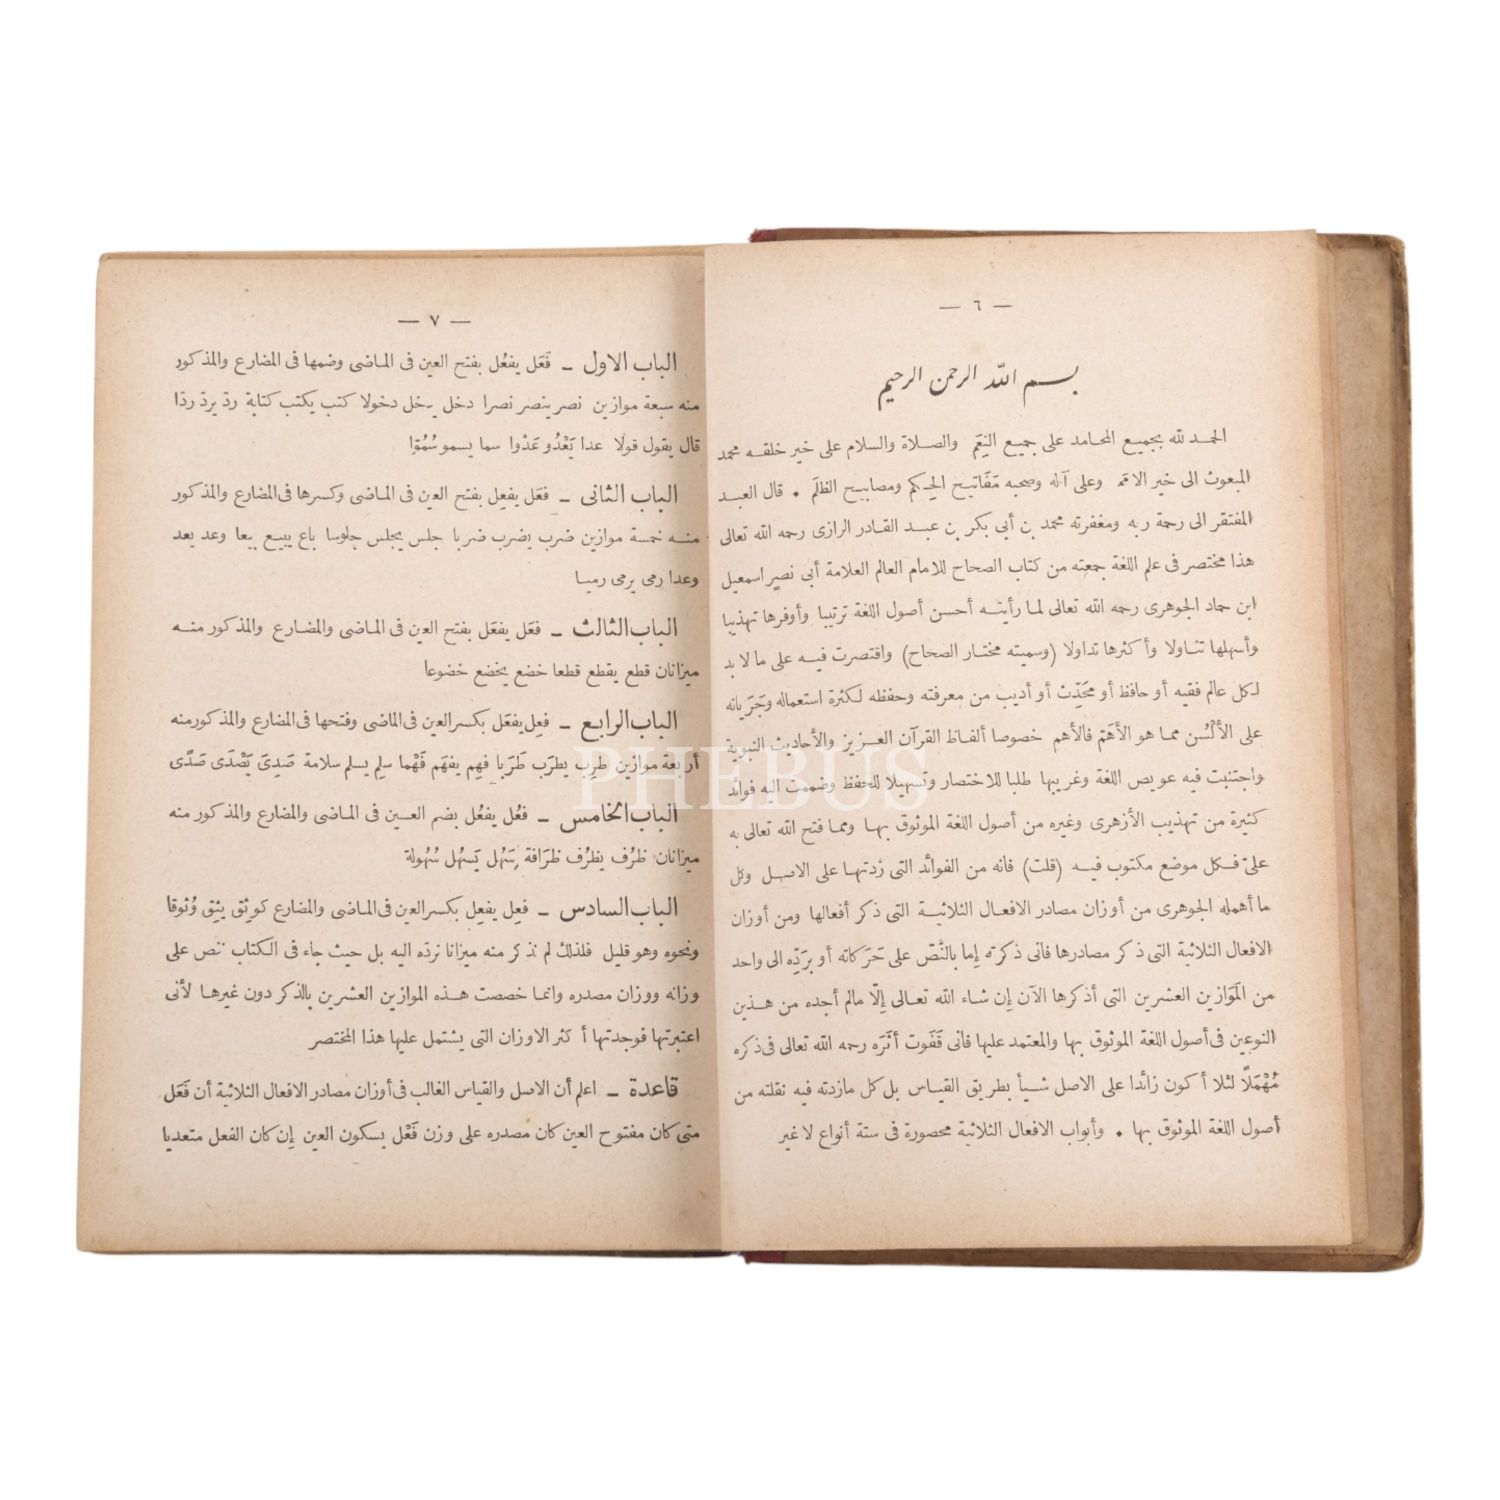 — ٦ —
بسم الله الرحمن الرحيم
الحمد لله بجميع المحامد على جميع النِعَم والصلاة والسلام على خير خلقه محمد
المبعوث الى خير الامم وعلى آله وصحبه مَفَاتيح الحِكم ومصابيح الظلَم • قال العبد
المفتقر الى رحمة ربه ومغفرته محمد بن أبي بكر بن عبد القادر الرازى رحمه الله تعالى
هذا مختصر فى علم اللغة جمعته من كتاب الصحاح للامام العالم العلامة أبي نصر اسمعيل
ابن حماد الجوهرى رحمه الله تعالى لما رأيته أحسن أصول اللغة ترتيبا وأوفرها تهذيبا
وأسهلها تناولا وأكثرها تداولا (وسميته مختار الصحاح) واقتصرت فيه على ما لا بد
لكل عالم فقيه أو حافظ أو محَدِّث أو أديب من معرفته وحفظه لكثرة استعماله وجَرَيانه
على الألْسُن مما هو الأهَم فالأهم خصوصا ألفاظ القرآن العزيز والأحاديث النبوية
واجتنبت فيه عويص اللغة وغريبها طلبا للاختصار وتسهيلا للحفظ وضممت اليه فوائد
كثيرة من تهذيب الأزهرى وغيره من أصول اللغة الموثوق بها ومما فتح الله تعالى به
علىّ فكل موضع مكتوب فيه (قلت) فانه من الفوائد التى زدتها على الاصل وكل
ما أهمله الجوهرى من أوزان مصادر الافعال الثلاثية التى ذكر أفعالها ومن أوزان
الافعال الثلاثية التى ذكر مصادرها فانى ذكرته إما بالنَّصّ على حَرَكاته أو بَردِّه الى واحد
من المَوَازين العشرين التى أذكرها الآن إن شاء الله تعالى إلّا مالم أجده من هذين
النوعين فى أصول اللغة الموثوق بها والمعتمد عليها فانى قَفَوت أثَرَه رحمه الله تعالى فى ذكره
مُهْمَلًا لئلا أكون زائدا على الاصل شيأ بطريق القياس بل كل مازدته فيه نقلته من
أصول اللغة الموثوق بها • وأبواب الافعال الثلاثية محصورة فى ستة أنواع لا غير
— ٧ —
الباب الاول – فَعَل يفعُل بفتح العين فى الماضى وضمها فى المضارع والمذكور
منه سبعة موازين نصر ينصر نصرا دخل يدخل دخولا كتب يكتب كتابة ردّ يردّ ردّا
قال يقول قولا عدا يَعْدُو عَدْوا سما يسمو سُمُوّا
الباب الثانى – فعَل يفعِل بفتح العين فى الماضى وكسرها فى المضارع والمذكور
منه خمسة موازين ضرب يضرب ضربا جلس يجلس جلوسا باع يبيع بيعا وعد يعد
وعدا رمى يرمى رميا
الباب الثالث – فعَل يفعَل بفتح العين فى الماضى والمضارع والمذكور منه
ميزانان قطع يقطع قطعا خضع يخضع خضوعا
الباب الرابع – فعِل يفعَل بكسر العين فى الماضى وفتحها فى المضارع والمذكور منه
أربعة موازين طرِب يطرَب طَرَبا فهِم يفهَم فَهْما سلِم يسلم سلامة صَدِىَ يَصْدَى صَدًى
الباب الخامس – فعُل يفعُل بضم العين فى الماضى والمضارع والمذكور منه
ميزانان ظرُف يظرُف ظرَافة سَهُل يَسهُل سُهُولة
الباب السادس – فعِل يفعِل بكسر العين فى الماضى والمضارع كوثِق يثِق وُثوقا
ونحوه وهو قليل فلذلك لم نذكر منه ميزانا نردّه اليه بل حيث جاء فى الكتاب ننص على
وزانه ووزان مصدره وانما خصصت هذه الموازين العشرين بالذكر دون غيرها لأنى
اعتبرتها فوجدتها أكثر الاوزان التى يشتمل عليها هذا المختصر
قاعدة – اعلم أن الاصل والقياس الغالب فى أوزان مصادر الافعال الثلاثية أن فَعَل
متى كان مفتوح العين كان مصدره على وزن فَعْل بسكون العين إن كان الفعل متعديا
PHEBUS